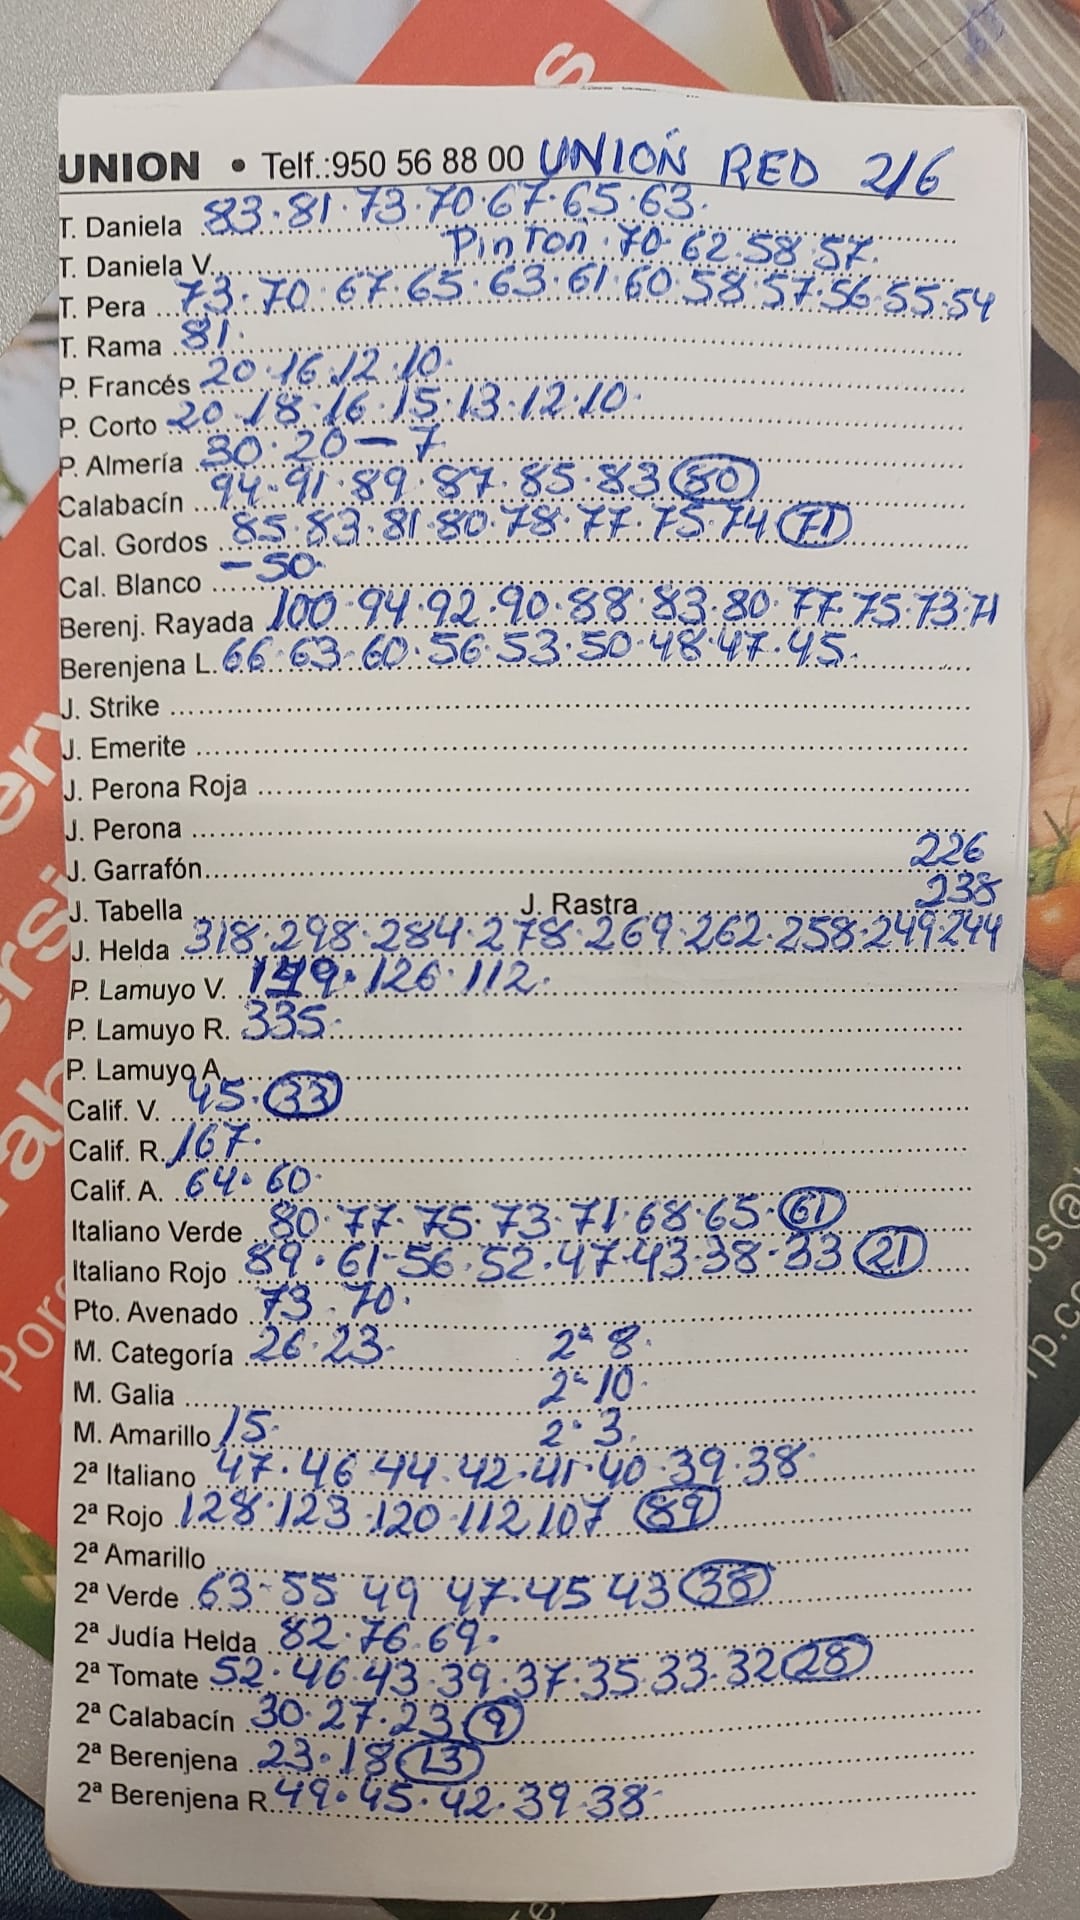 UNION • Telf.:950 56 88 00 UNION RED 2/6
T. Daniela 83·81·73·70·67·65·63·
T. Daniela V. Pinton·70·62·58·57·
T. Pera 73·70·67·65·63·61·60·58·57·56·55·54
T. Rama 81·
P. Francés 20·16·12·10·
P. Corto 20·18·16·15·13·12·10·
P. Almería 30·20-7
Calabacín 94·91·89·87·85·83 80
Cal. Gordos 85·83·81·80·78·77·75·74 71
Cal. Blanco -50·
Berenj. Rayada 100·94·92·90·88·83·80·77·75·73·71
Berenjena L. 66·63·60·56·53·50·48·47·45·
J. Strike
J. Emerite
J. Perona Roja
J. Perona
J. Garrafón 226
J. Tabella J. Rastra 238
J. Helda 318·298·284·278·269·262·258·249·244
P. Lamuyo V. 149·126·112·
P. Lamuyo R. 335·
P. Lamuyo A.
Calif. V. 45·33
Calif. R. 167·
Calif. A. 64·60·
Italiano Verde 80·77·75·73·71·68·65·61
Italiano Rojo 89·61-56·52·47·43·38·33 21
Pto. Avenado 73·70·
M. Categoría 26·23· 2ª 8·
M. Galia 2ª 10·
M. Amarillo 15· 2ª 3·
2ª Italiano 47·46·44·42·41·40·39·38·
2ª Rojo 128·123·120·112 107 89
2ª Amarillo
2ª Verde 63-55 49 47·45 43
2ª Judía Helda 82·76·69·
2ª Tomate 52·46·43·39·37·35·33·32 28
2ª Calabacín 30·27·23 9
2ª Berenjena 23·18 13
2ª Berenjena R. 49·45·42·39·38·